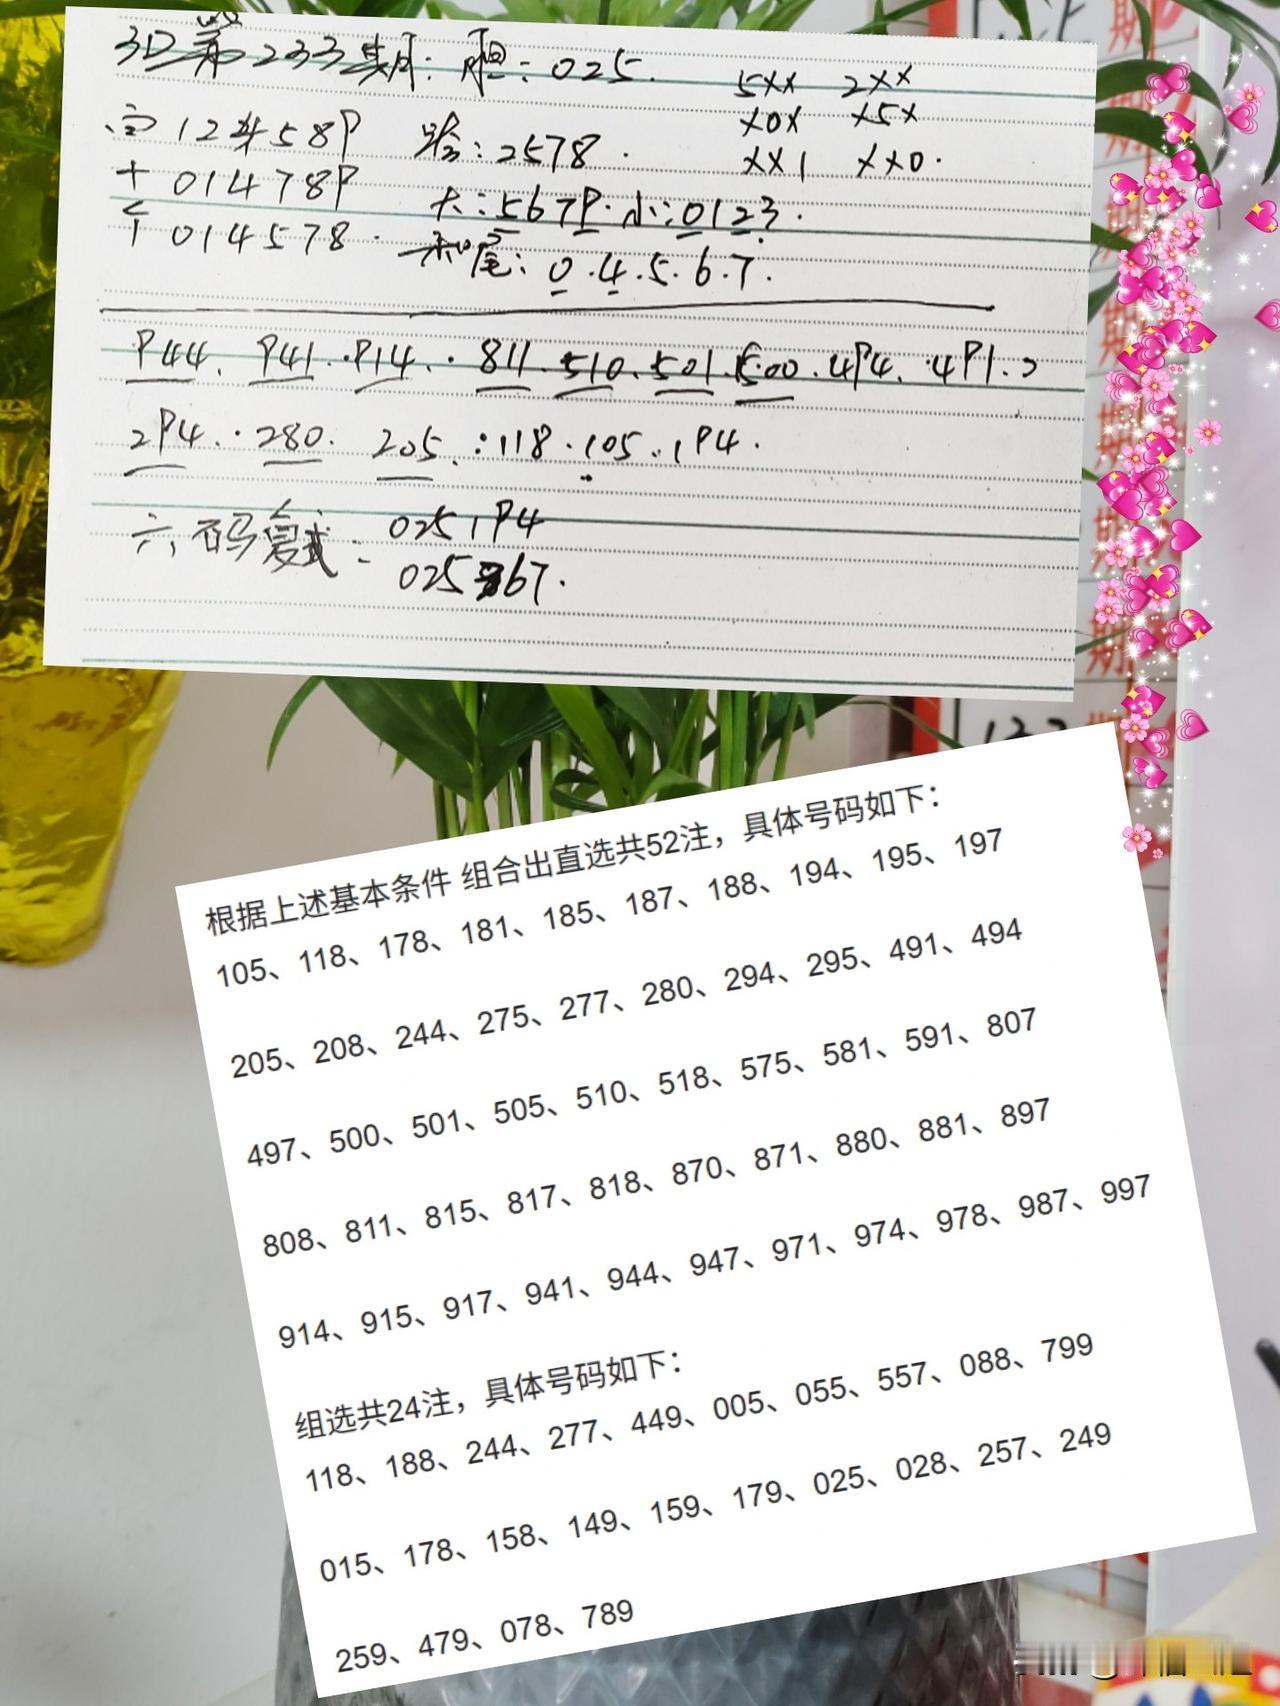 3D第233期：胆：025.
5XX 2XX
X0X X5X
XX1 XX0.
百12458P 跨：2578.
十01478P 大：567P.小：0123.
个014578. 和尾：0.4.5.6.7.
P44.P41.P14.811.510.501.500.4P4.4P1.
2P4.280.205.:118.105.1P4.
六码复式：0251P4
025867.
根据上述基本条件 组合出直选共52注，具体号码如下：
105、118、178、181、185、187、188、194、195、197
205、208、244、275、277、280、294、295、491、494
497、500、501、505、510、518、575、581、591、807
808、811、815、817、818、870、871、880、881、897
914、915、917、941、944、947、971、974、978、987、997
组选共24注，具体号码如下：
118、188、244、277、449、005、055、557、088、799
015、178、158、149、159、179、025、028、257、249
259、479、078、789
期
期